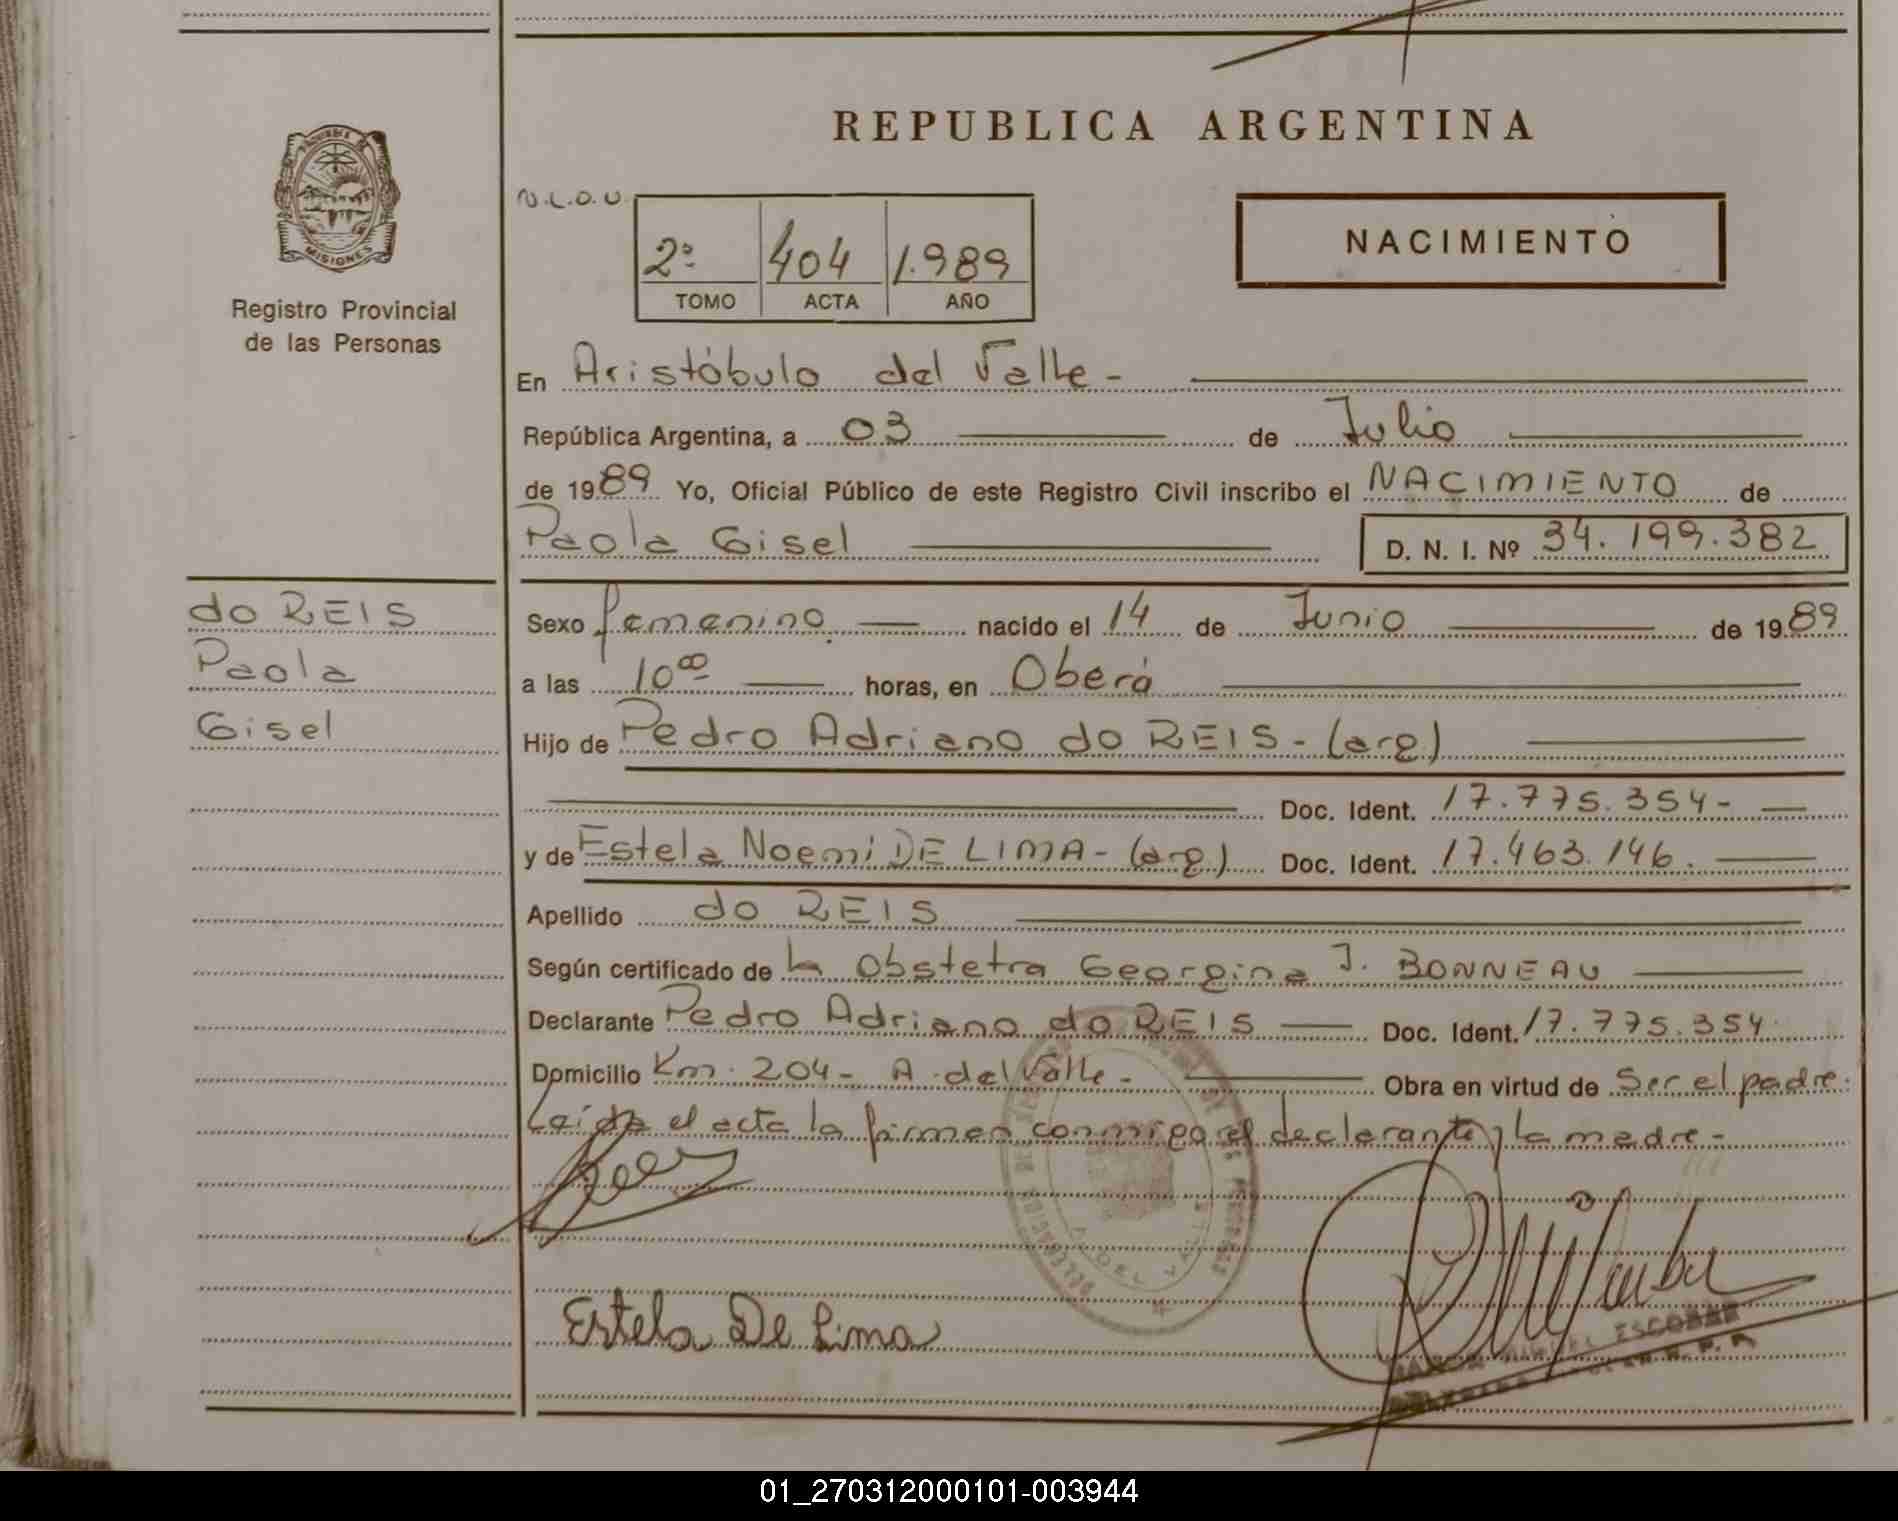 REPUBLICA ARGENTINA
MISIONES
Registro Provincial
de las Personas
N.L.O.U.
2º 404 1.989
TOMO ACTA AÑO
NACIMIENTO
En Aristóbulo del Valle -
República Argentina, a 03 de Julio
de 1989 Yo, Oficial Público de este Registro Civil inscribo el NACIMIENTO de
Paola Gisel D. N. I. Nº 34.199.382
do REIS
Paola
Gisel
Sexo femenino nacido el 14 de Junio de 1989
a las 10⁰⁰ horas, en Oberá
Hijo de Pedro Adriano do REIS - (arg)
Doc. Ident. 17.775.354 -
y de Estela Noemi DE LIMA - (arg) Doc. Ident. 17.463.146.
Apellido do REIS
Según certificado de la Obstetra Georgina J. BONNEAU
Declarante Pedro Adriano do REIS Doc. Ident. 17.775.354
Domicilio Km. 204 - A. del Valle - Obra en virtud de Ser el padre.
Leída el acta la firman conmigo el declarante y la madre -
A. DEL VALLE
Estela De Lima
ESCOBAR
01_270312000101-003944